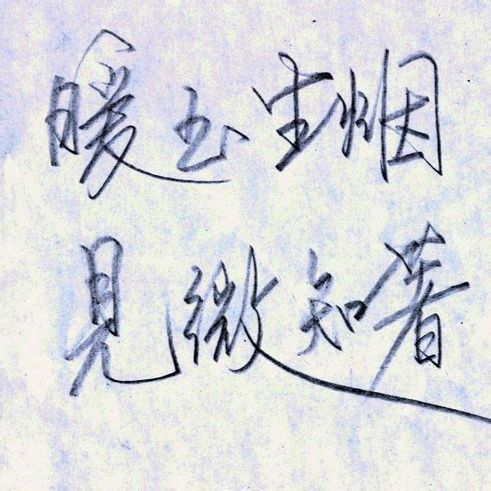 暖玉生烟
見微知著